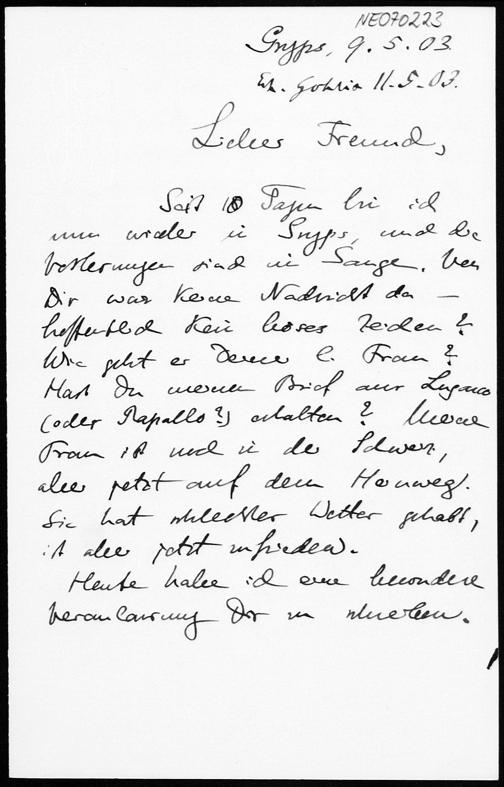 NE070223
Gryps, 9. 5. 03.
Erh. 11.5.03.
Lieber Freund,
Seit 10 Tagen bin ich
nun wieder in Gryps, und die
Vorlesungen sind im Gange. Von
Dir war keine Nachricht da —
hoffentlich kein böses Zeichen?
Wie geht es Deiner l. Frau?
Hast Du meinen Brief aus Lugano
(oder Rapallo?) erhalten? Meine
Frau ist noch in der Schweiz,
aber jetzt auf dem Heimweg.
Sie hat schlechtes Wetter gehabt,
ist aber jetzt zufrieden.
Heute habe ich eine besondere
Veranlassung Dir zu schreiben.